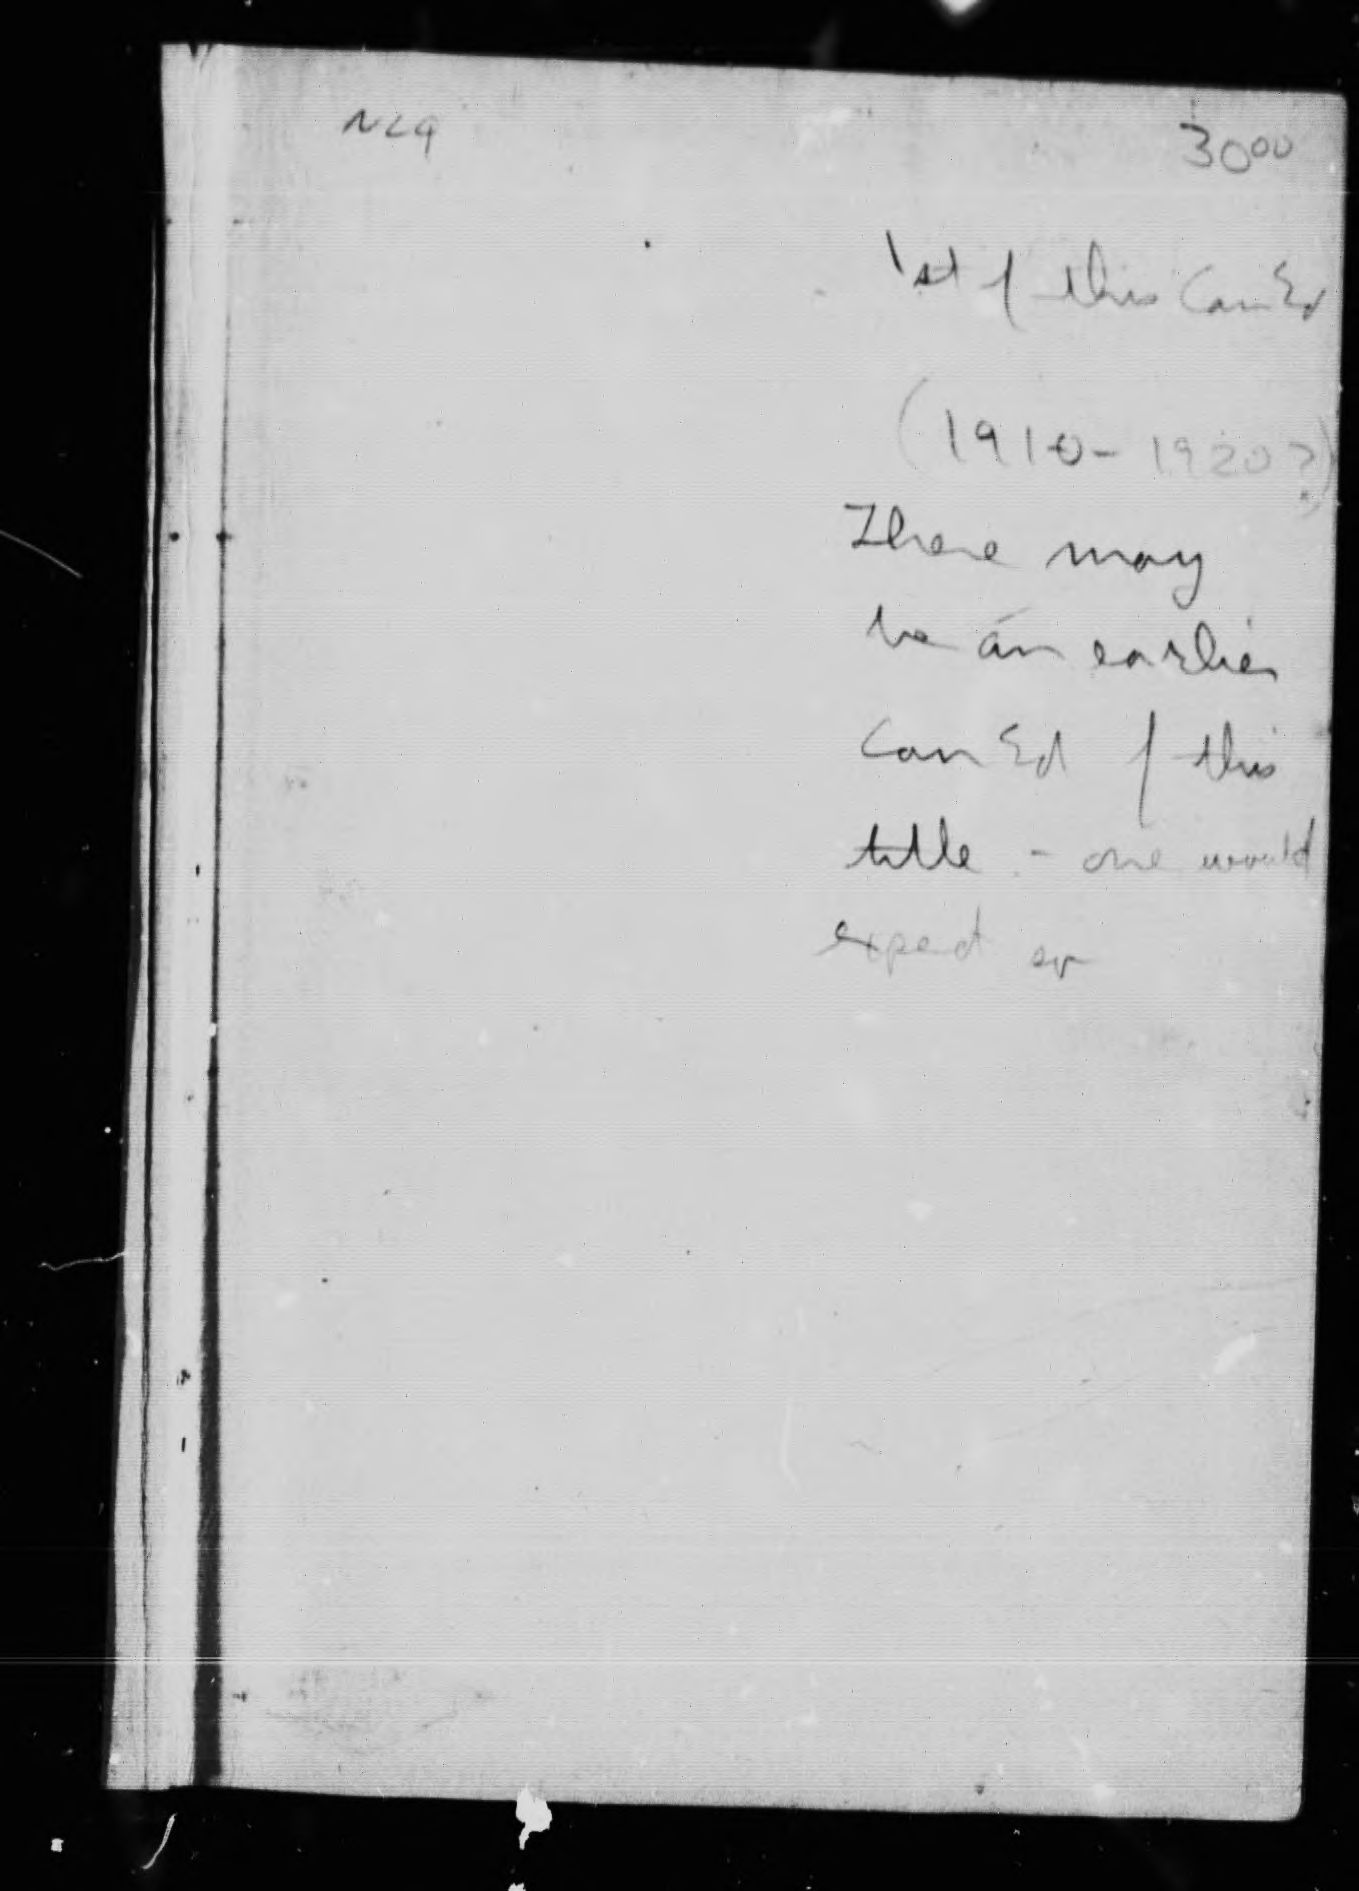 NLQ
30⁰⁰
1st of this Can Ed
(1910-1920?)
There may
be an earlier
Can Ed of this
title - one would
expect so